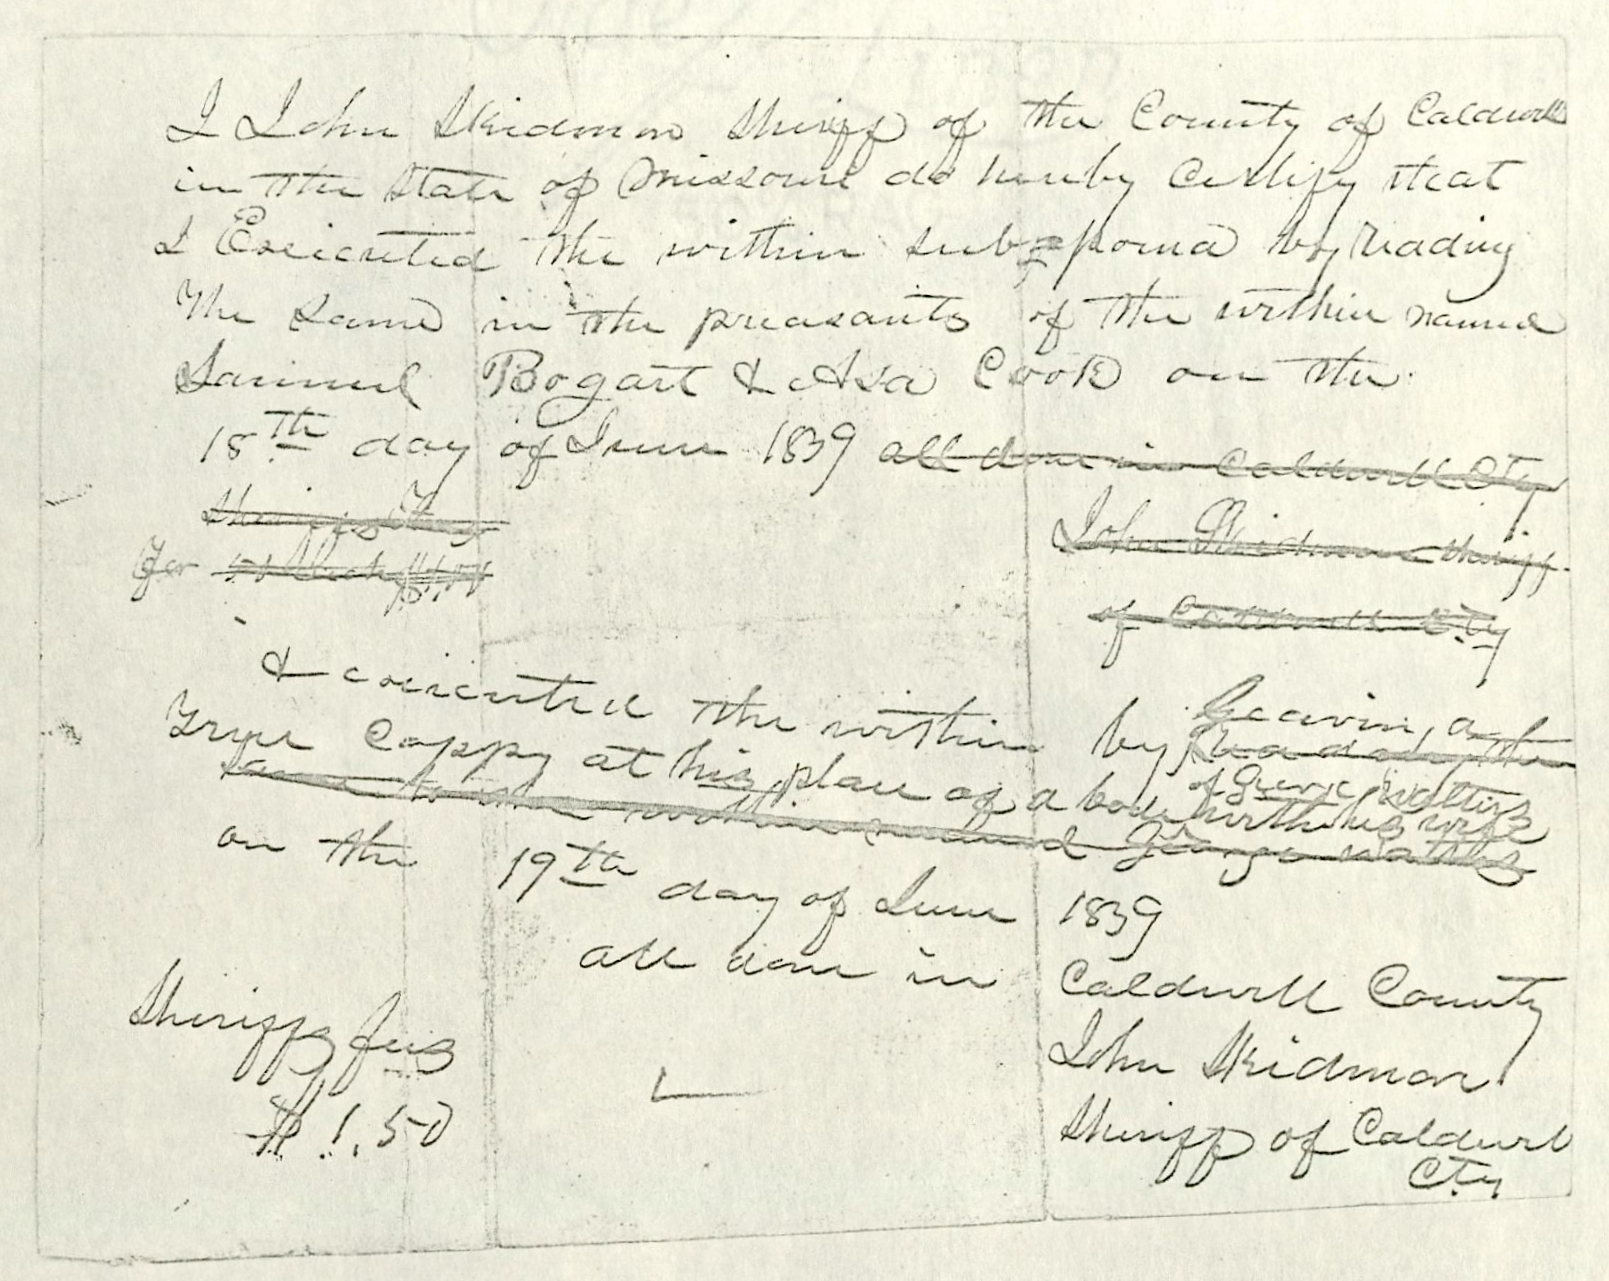 I John Skidmore Sheriff of the County of Caldwell
in the State of Missouri do hereby Certify that
I Exicuted the within subpoena by reading
the same in the preasants of the within named
Samuel Bogart & Asa Cook on the
18th day of June 1839 all done in Caldwell Cty
Sheriffs Fees
For
John Skidmore Sheriff
of Caldwell Cty
& exicuted the within by Leaving a
Reading the
True Coppy at his place of abode with his wife
of George Walters
same to the within named George Walters
on the 19th day of June 1839
all done in Caldwell County
Sheriffs fees
$1.50
John Skidmore
Sheriff of Caldwell
Cty